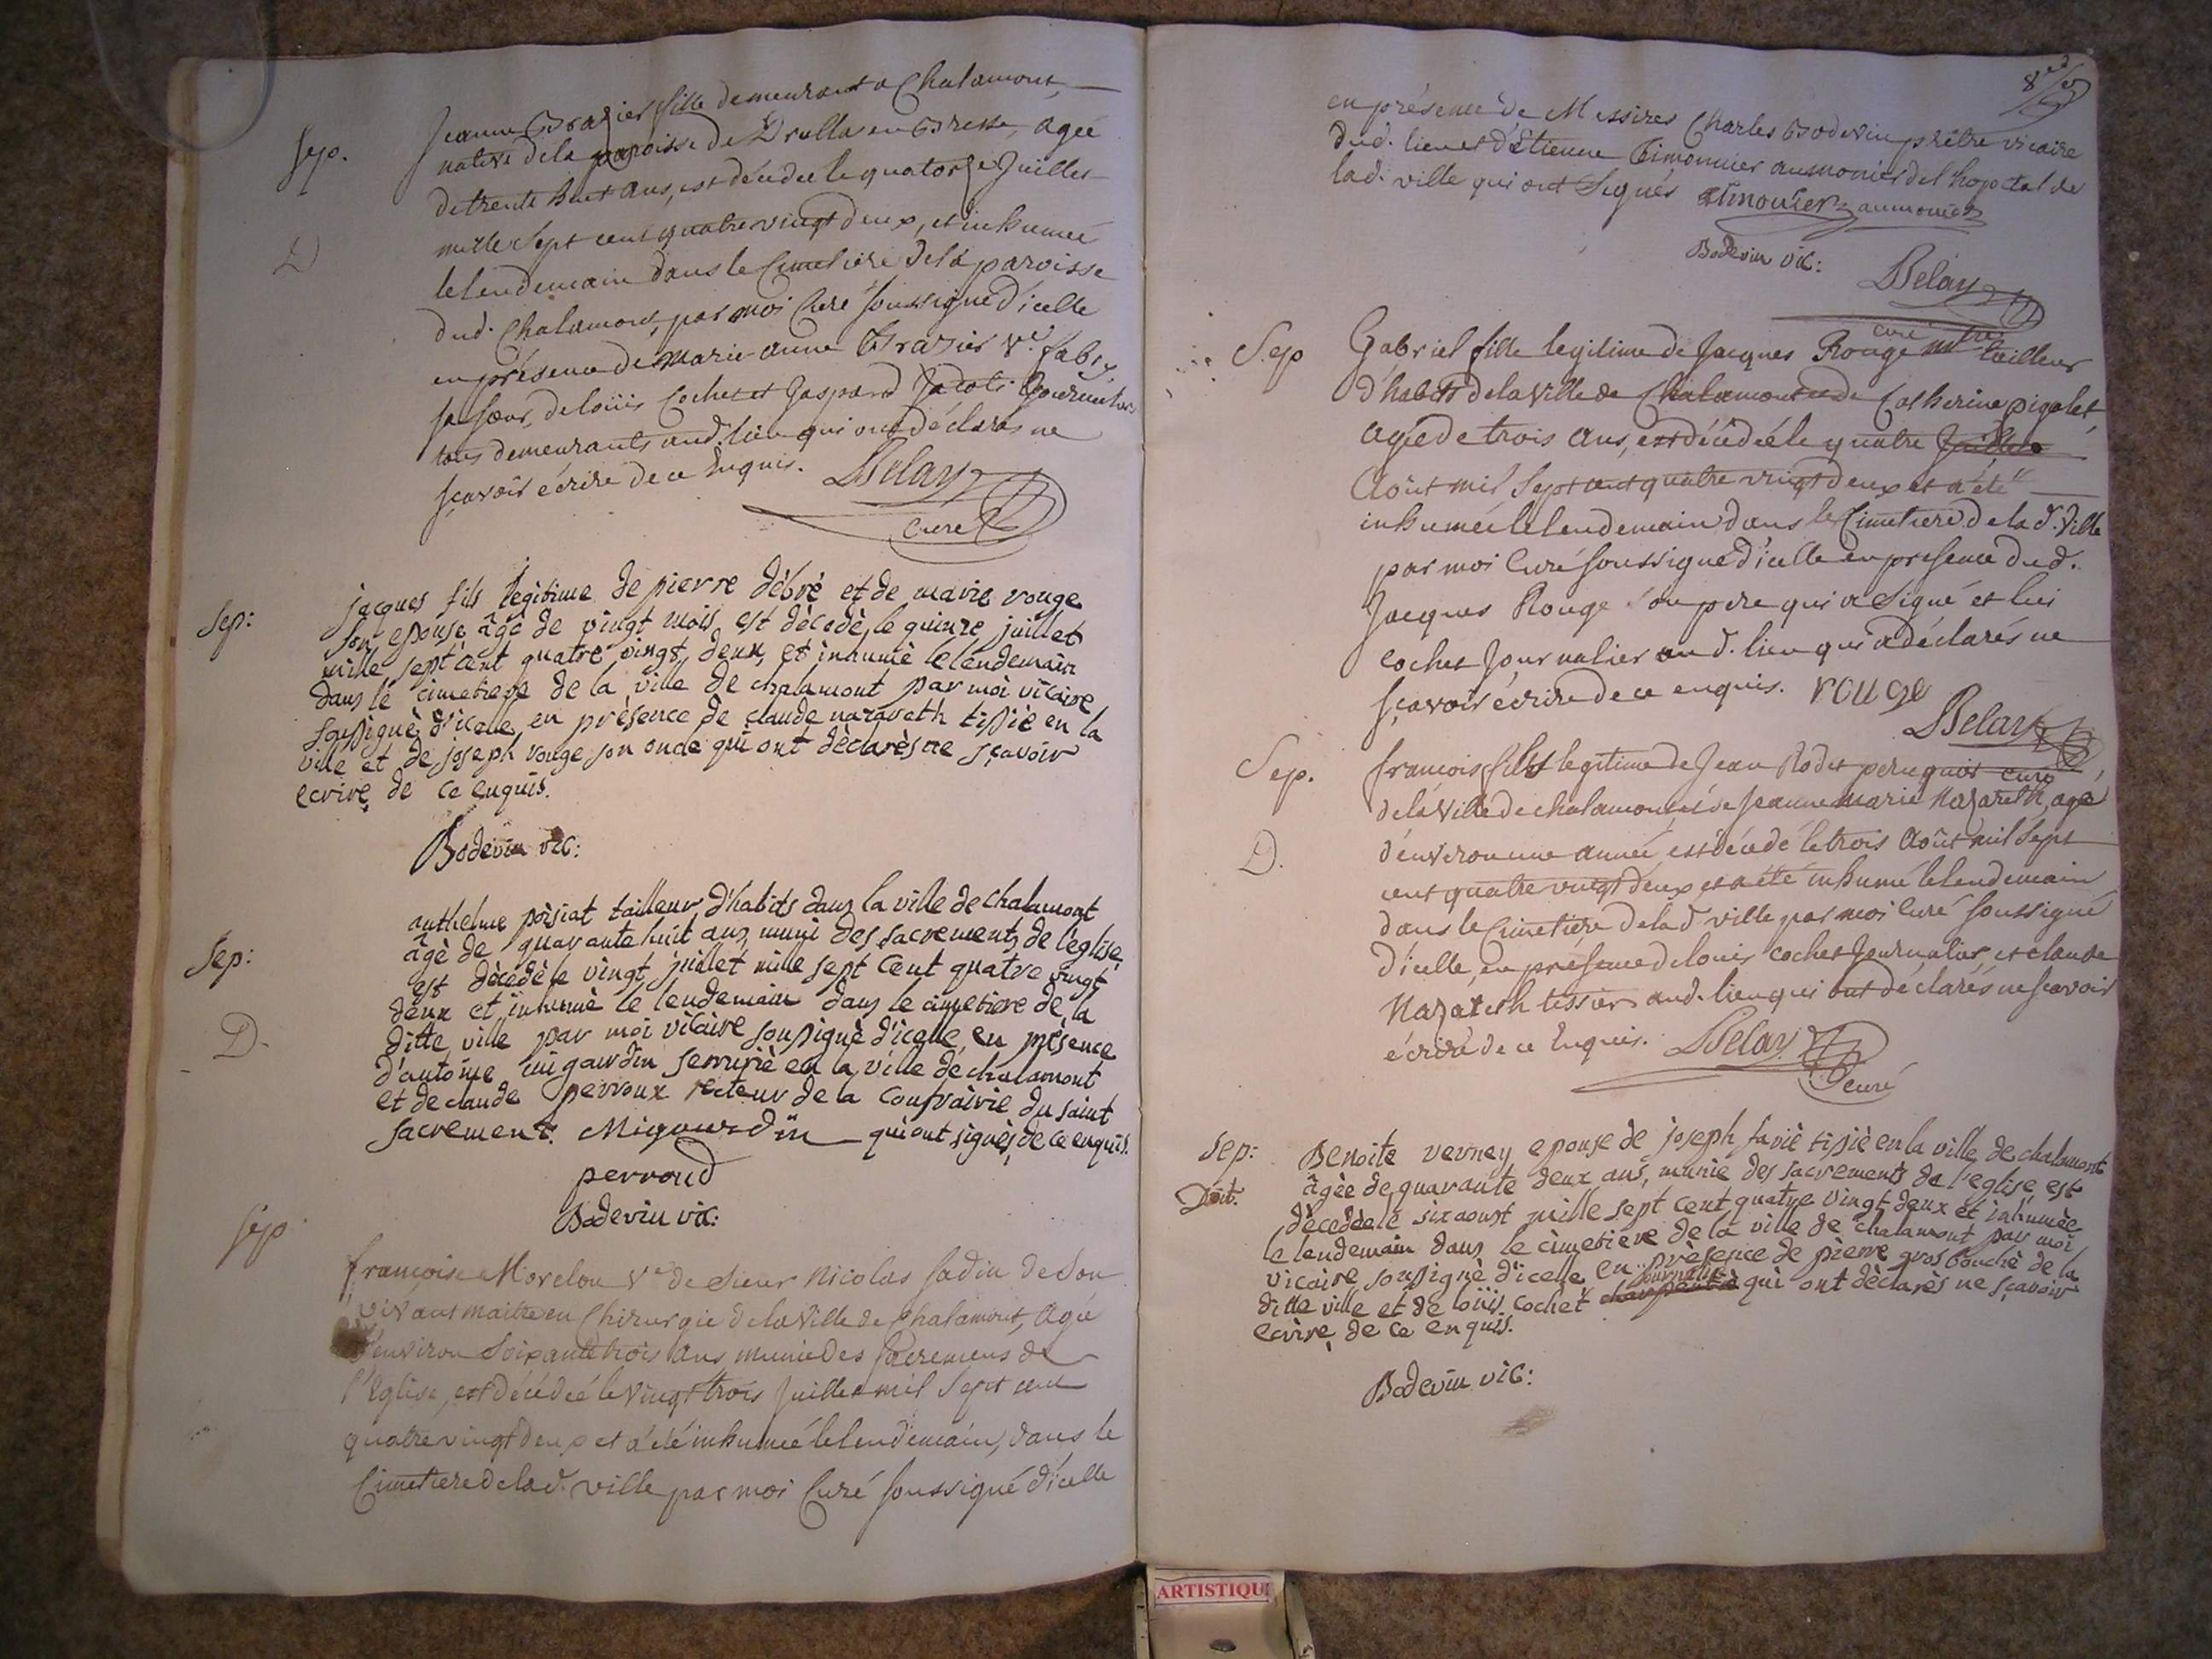 Sep.
D
Jeanne Brazier fille demeurant a Chalamont,
native de la paroisse de Drulla en Bresse, agée
de trente huit ans, est décédée le quatorze Juillet
mille sept cent quatre vingt deux, et inhumée
le lendemain dans le Cimetiere de la paroisse
dud. Chalamont, par moi Curé soussigné d'icelle
en présence de Marie-anne Brazier Ve. fabry,
sa sœur, de loüis Cochet et Gaspard
tous demeurants aud. lieu qui ont déclarés ne
sçavoir écrire de ce Enquis. Delay
Curé
Sep:
jacques fils lègitime de pierre dèbrè et de marie rouge
son epouse âgè de vingt mois est dècedè le quinze juillet
mille sept cent quatre vingt deux, et inhumè le lendemain
dans le cimetiere de la ville de chalamont par moi vicaire
soussignè d'icelle en prèsence de claude nazareth tissiè en la
ville et de joseph rouge son oncle qui ont dèclarès ne sçavoir
ecrire de ce enquis.
Bodevin vic:
Sep:
D.
anthelme poisiat tailleur d'habits dans la ville de chalamont
âgè de quarante huit ans, muni des sacrements de l'èglise
est dècèdè le vingt juillet mille sept cent quatre vingt
deux et inhumè le lendemain dans le cimetiere de la
ditte ville par moi vicaire soussignè d'icelle, en prèsence
d'antoine migaurdin serruriè en la ville de chalamont
et de claude perroux recteur de la confrairie du saint
sacrement. Migourdin qui ont signès, de ce enquis.
perroud
Bodevin vic:
Sep
françoise Morelon Ve de Sieur Nicolas Jadin de Son
vivant maitre en Chirurgie de la Ville de Chalamont, Agée
d'environ Soixante trois Ans munie des Sacremens de
l'Eglise, est décédée le vingt trois Juillet mil Sept cent
quatre vingt deux et a été inhumée le lendemain, dans le
Cimetiere de lad. ville par moi Curé soussigné d'icelle
8e
en présence de Messires Charles Bodevin prêtre vicaire
dud. lieu et d'Etienne Timonnier aumonier de l'hopital de
lad. ville qui ont Signés Timonier aumonier
Bodevin vic:
Delay
curé
Sep
Gabriel fille legitime de Jacques Rouge mtre tailleur
d'habits de la Ville de Chalamont et de Catherine pigolet,
agée de trois Ans, est décédée le quatre Juillet
Août mil Sept cent quatre vingt deux et a été
inhumée le lendemain dans le Cimetiere de la d. Ville
par moi Curé soussigné d'icelle en presence dud.
Jacques Rouge son pere qui a Signé et lui
cochet Journalier aud. lieu qui a déclarés ne
sçavoir écrire de ce enquis. rouge
Delay
curé
Sep.
D.
françois fils legitime de Jean Rodet peruquier
de la Ville de chalamont et de Jeanne marie Nazareth, agé
d'environ une année, est décédé le trois Août mil Sept
cent quatre vingt deux et a été inhumé le lendemain
dans le Cimetière de la d ville par moi Curé soussigné
d'icelle, en présence de louis cochet Journalier, et claude
Nazareth tissier aud. lieu qui ont déclarés ne scavoir
écrire de ce Enquis. Delay
curé
Sep:
Doit.
Benoite verney epouse de joseph faviè tissiè en la ville de chalamont
âgèe de quarante deux ans, munie des sacrements de l'eglise est
dècèdèe le six aoust mille sept cent quatre vingt deux et inhumèe
le lendemain dans le cimetiere de la ville de chalamont par moi
vicaire soussignè d'icelle en prèsence de pierre gros bouchè de la
ditte ville et de loüis cochet charpentiè journaliè qui ont dèclarès ne sçavoir
ecrire de ce enquis.
Bodevin vic:
ARTISTIQU